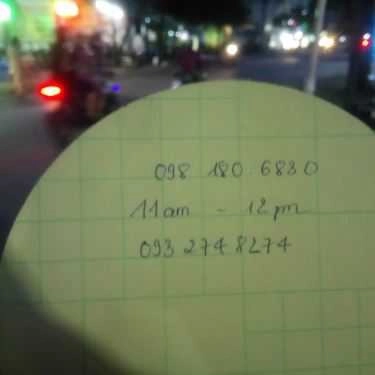 098 180 6830
11am - 12pm
093 274 8274